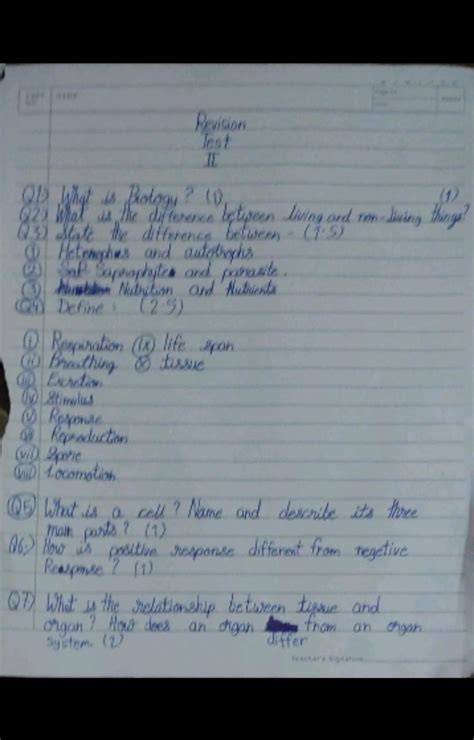 Revision
Test
II
Q1) What is Biology? (1) (1)
Q2) What is the difference between living and non-living things?
Q3) State the difference between - (1.5)
① Heterophs and autotrophs
② Saprophyte and parasite.
③ Nutrition and Nutrients
Q4) Define : (2.5)
(i) Respiration (ix) life span
(ii) Breathing (x) tissue
(iii) Excretion
(iv) Stimulus
(v) Response
(vi) Reproduction
(vii) Spore
(viii) Locomotion
Q5 What is a cell? Name and describe its three
main parts? (1)
Q6:) How is positive response different from negetive
Response? (1)
Q7) What is the relationship between tissue and
organ? How does an organ from an organ
system. (2) differ
Teacher's Signature